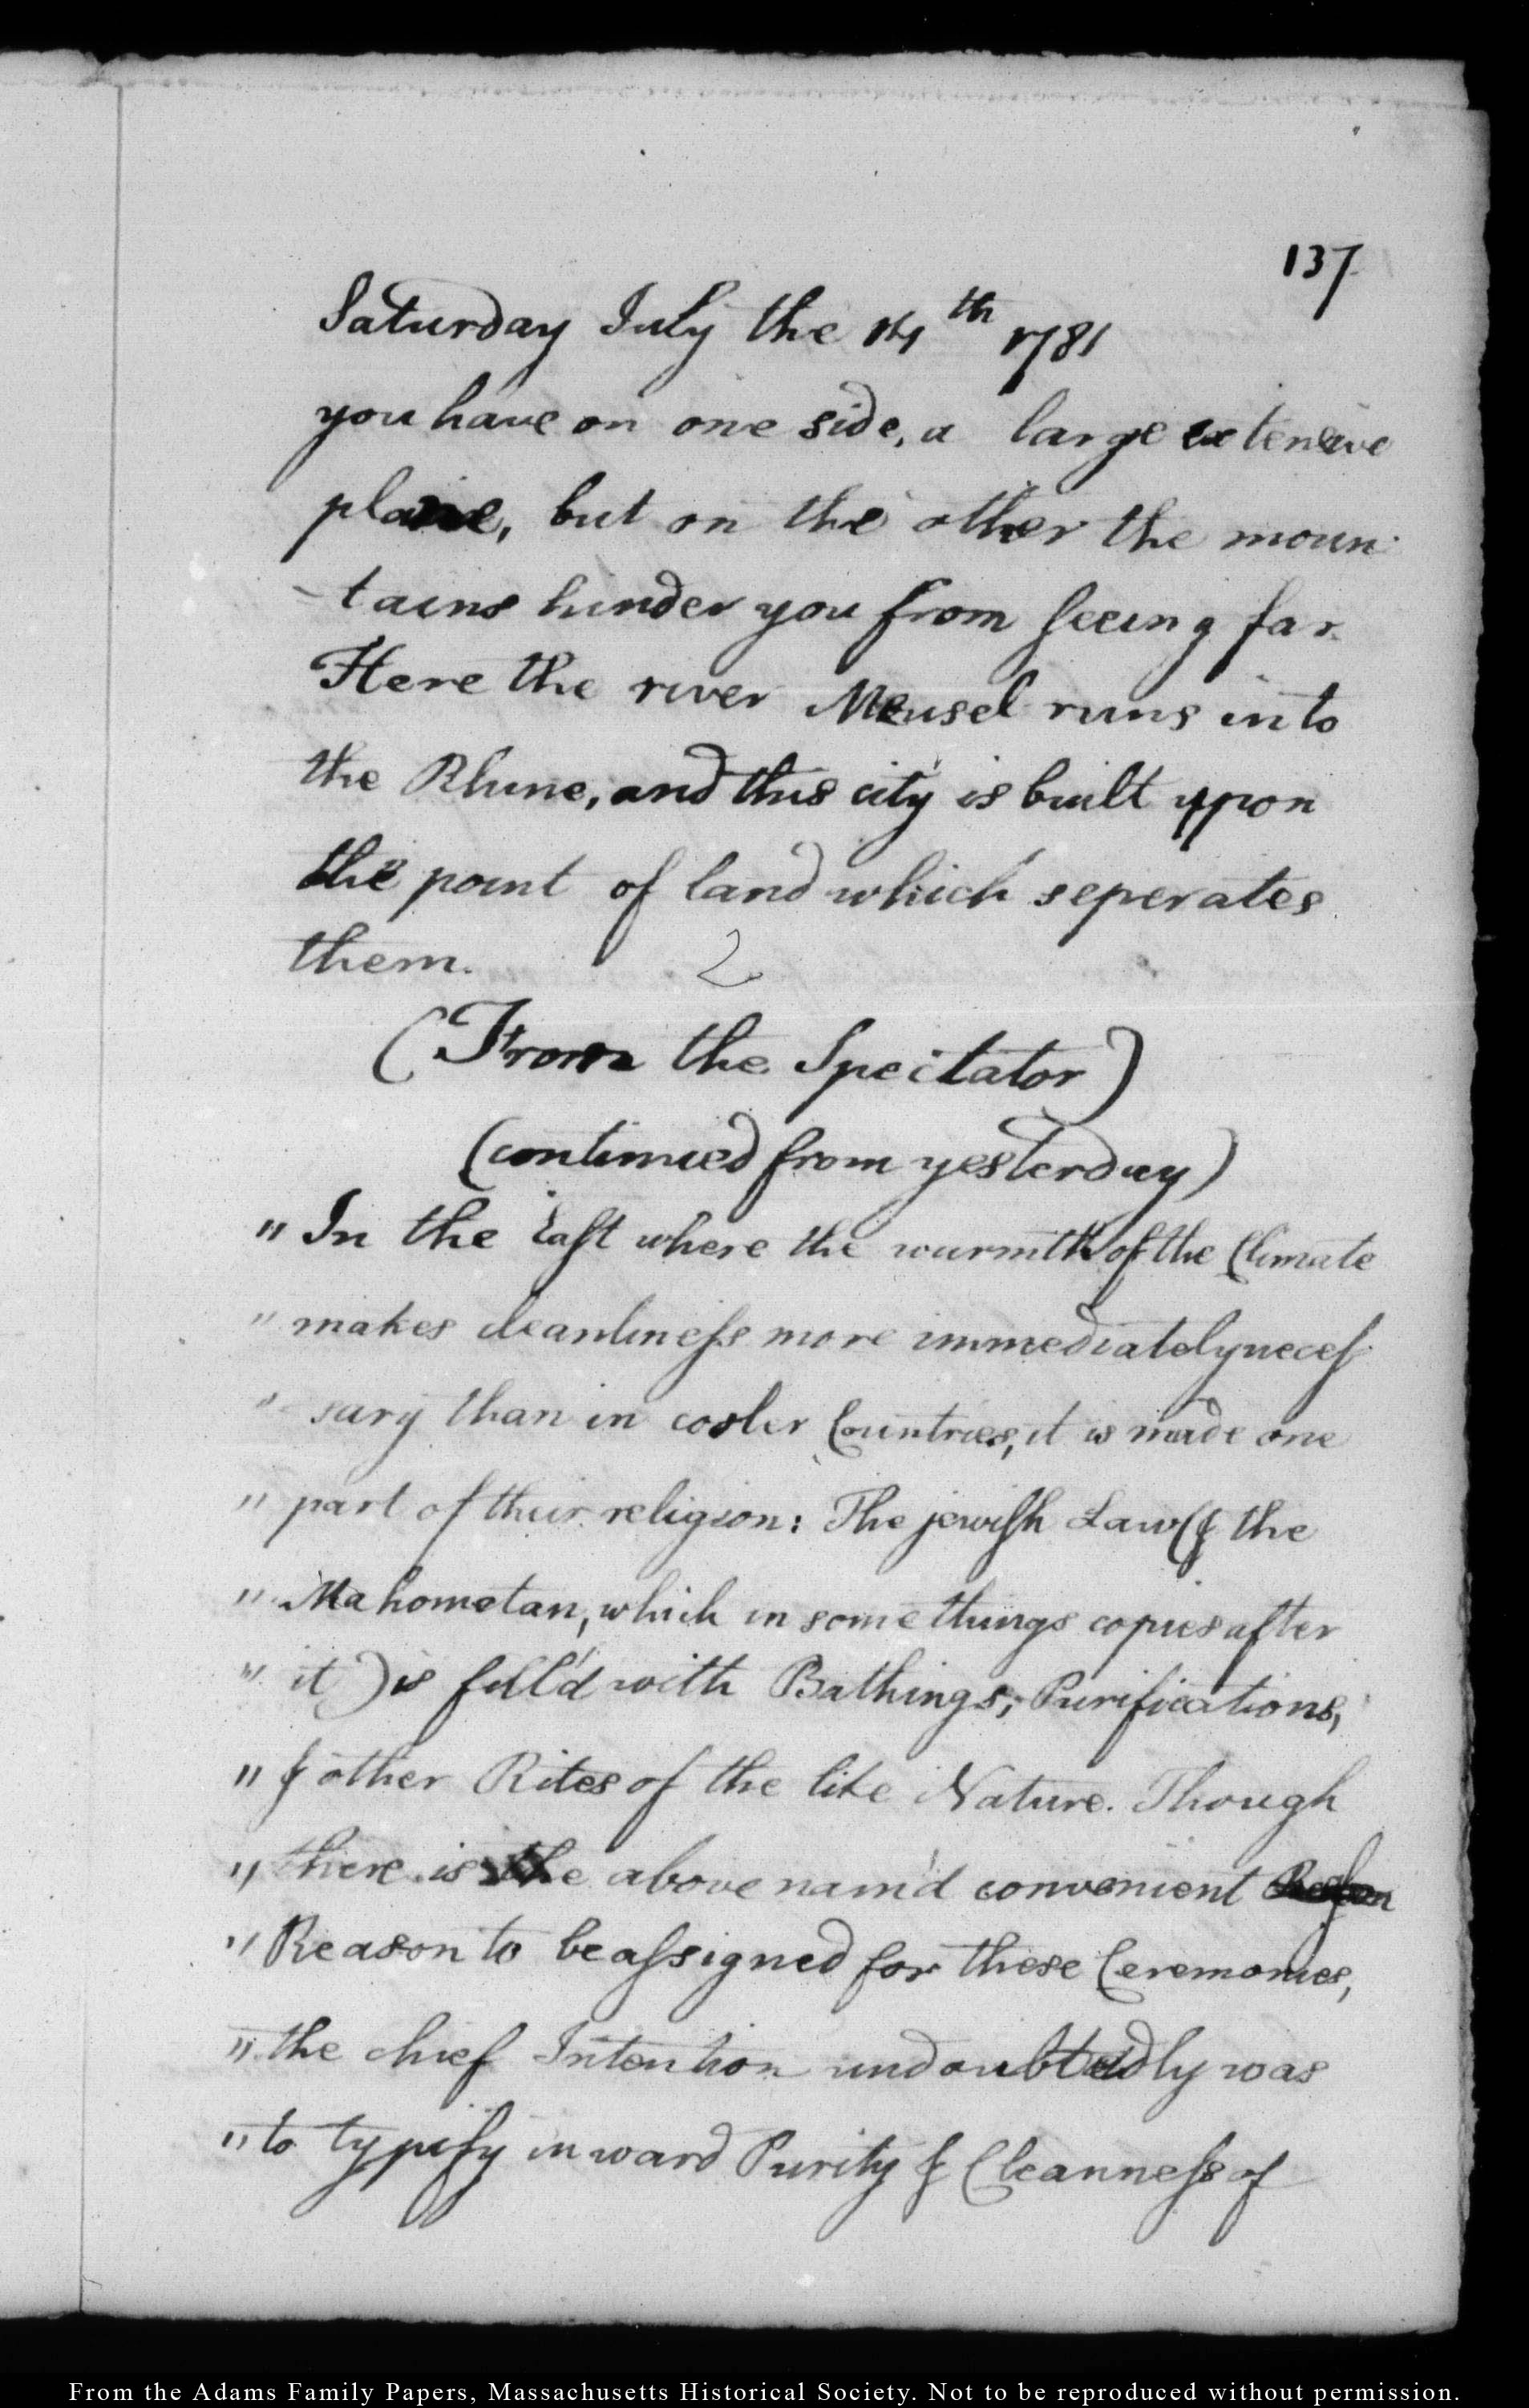 137
Saturday July the 14th 1781
you have on one side, a large extensive
plaine, but on the other the moun-
-tains hinder you from seeing far.
Here the river Meusel runs into
the Rhine, and this city is built upon
the point of land which seperates
them.
2
(From the Spectator)
(continued from yesterday)
" In the East where the warmth of the Climate
" makes cleanliness more immediately neces-
" sary than in cooler Countries, it is made one
" part of their religion: The jewish Law (& the
" Mahometan, which in some things copies after
" it) is fill'd with Bathings, Purifications,
" & other Rites of the like Nature. Though
" there is the above nam'd convenient
" Reason to be assigned for these Ceremonies,
" the chief Intention undoubtedly was
" to typify inward Purity & Cleanness of
From the Adams Family Papers, Massachusetts Historical Society. Not to be reproduced without permission.